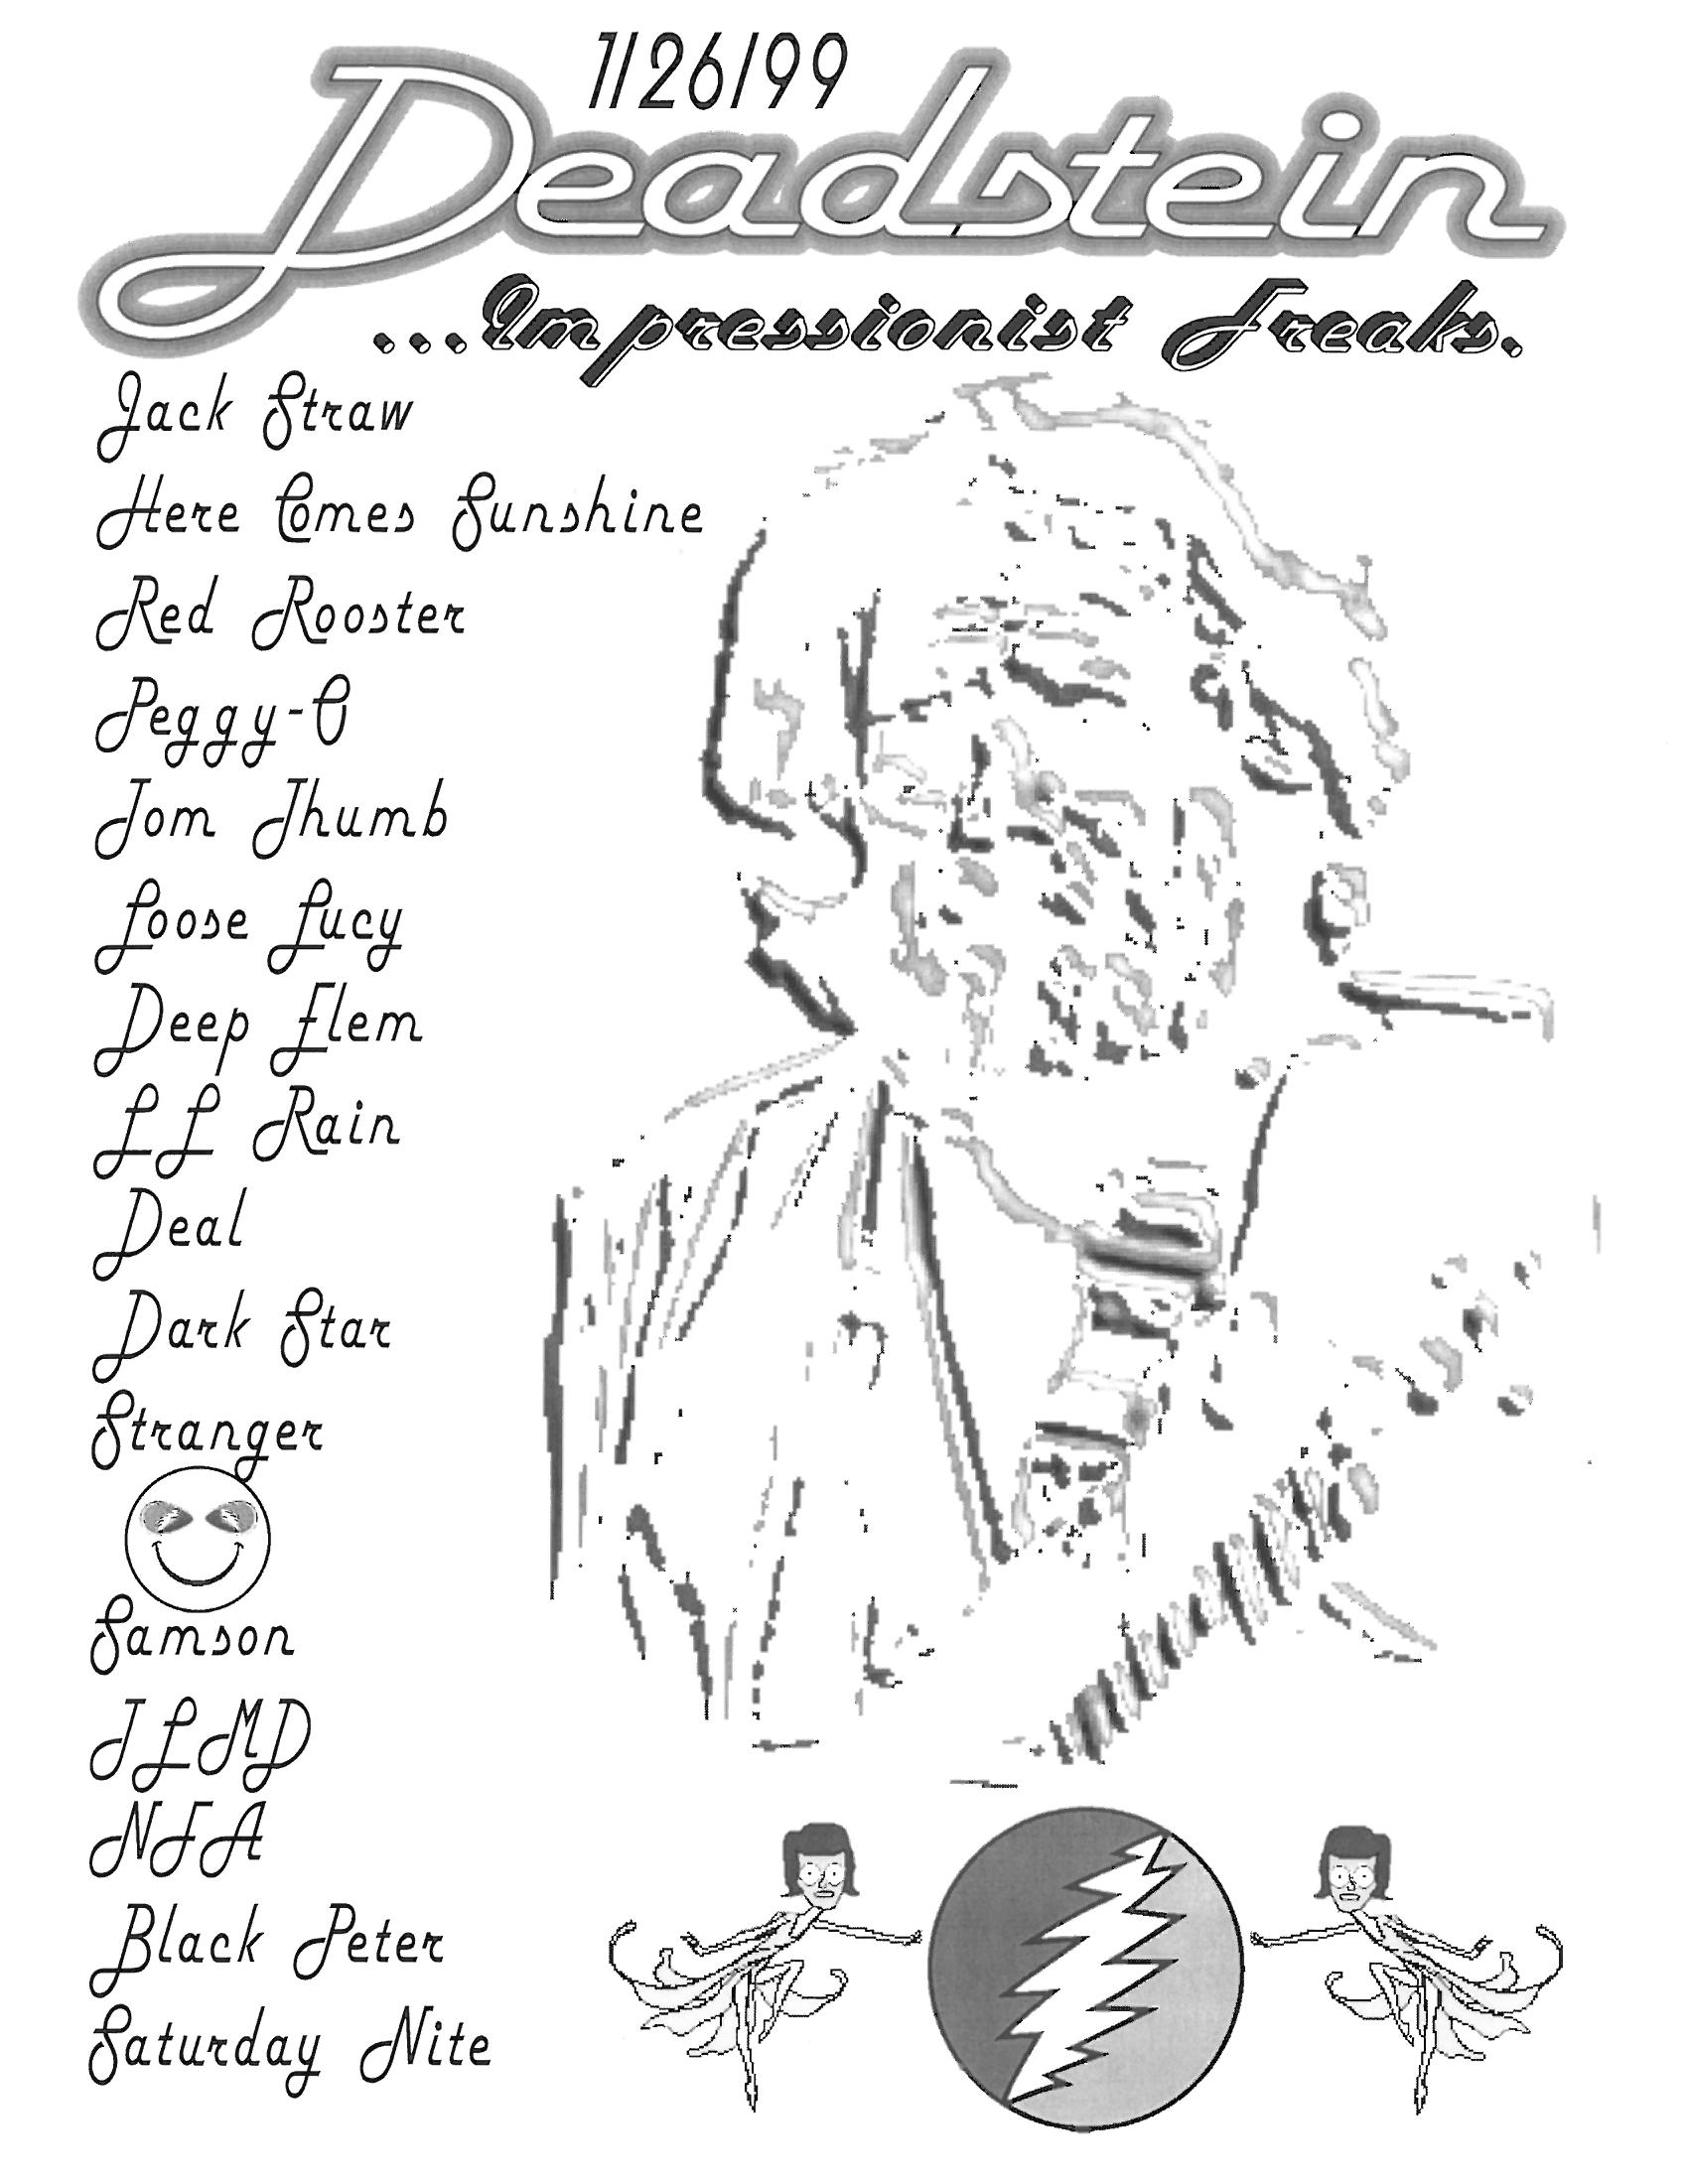 1/26/99
Deadstein
...Impressionist Freaks.
Jack Straw
Here Comes Sunshine
Red Rooster
Peggy-O
Tom Thumb
Loose Lucy
Deep Elem
LL Rain
Deal
Dark Star
Stranger
Samson
TLMD
NFA
Black Peter
Saturday Nite